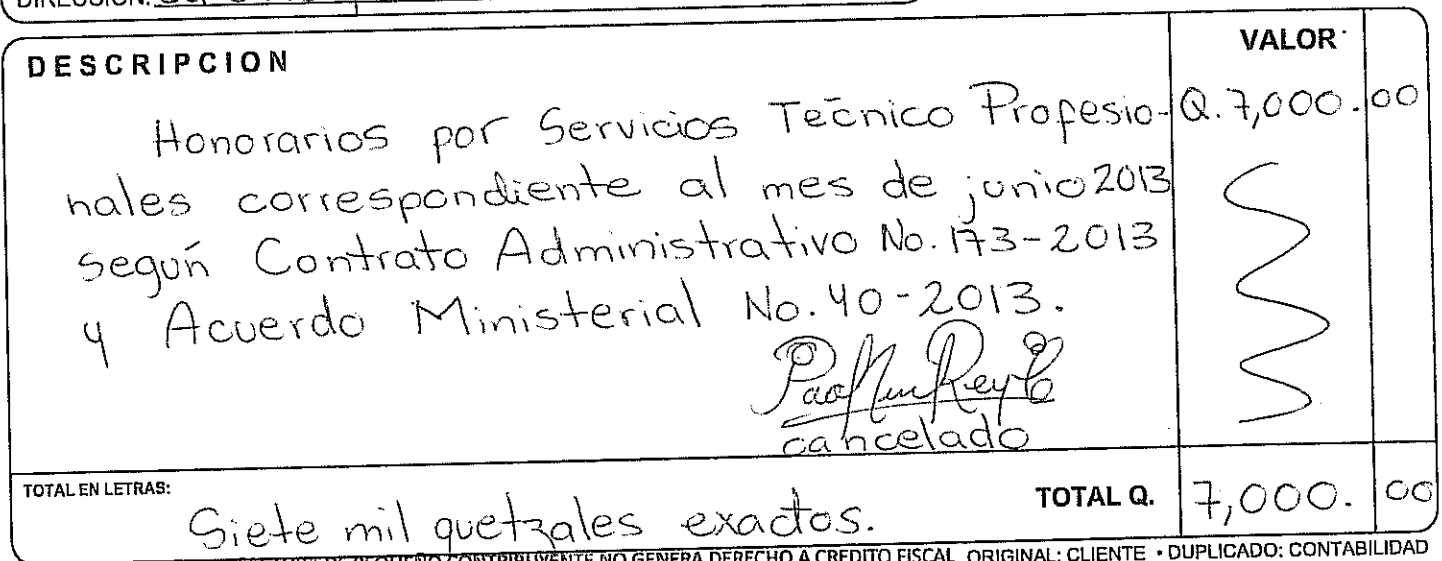 DIRECCION:
DESCRIPCION
VALOR
Honorarios por Servicios Técnico Profesio- Q. 7,000.00
nales correspondiente al mes de junio 2013
según Contrato Administrativo No. 173-2013
y Acuerdo Ministerial No. 40-2013.
cancelado
TOTAL EN LETRAS:
Siete mil quetzales exactos.
TOTAL Q. 7,000.00
PEQUEÑO CONTRIBUYENTE NO GENERA DERECHO A CREDITO FISCAL ORIGINAL: CLIENTE • DUPLICADO: CONTABILIDAD